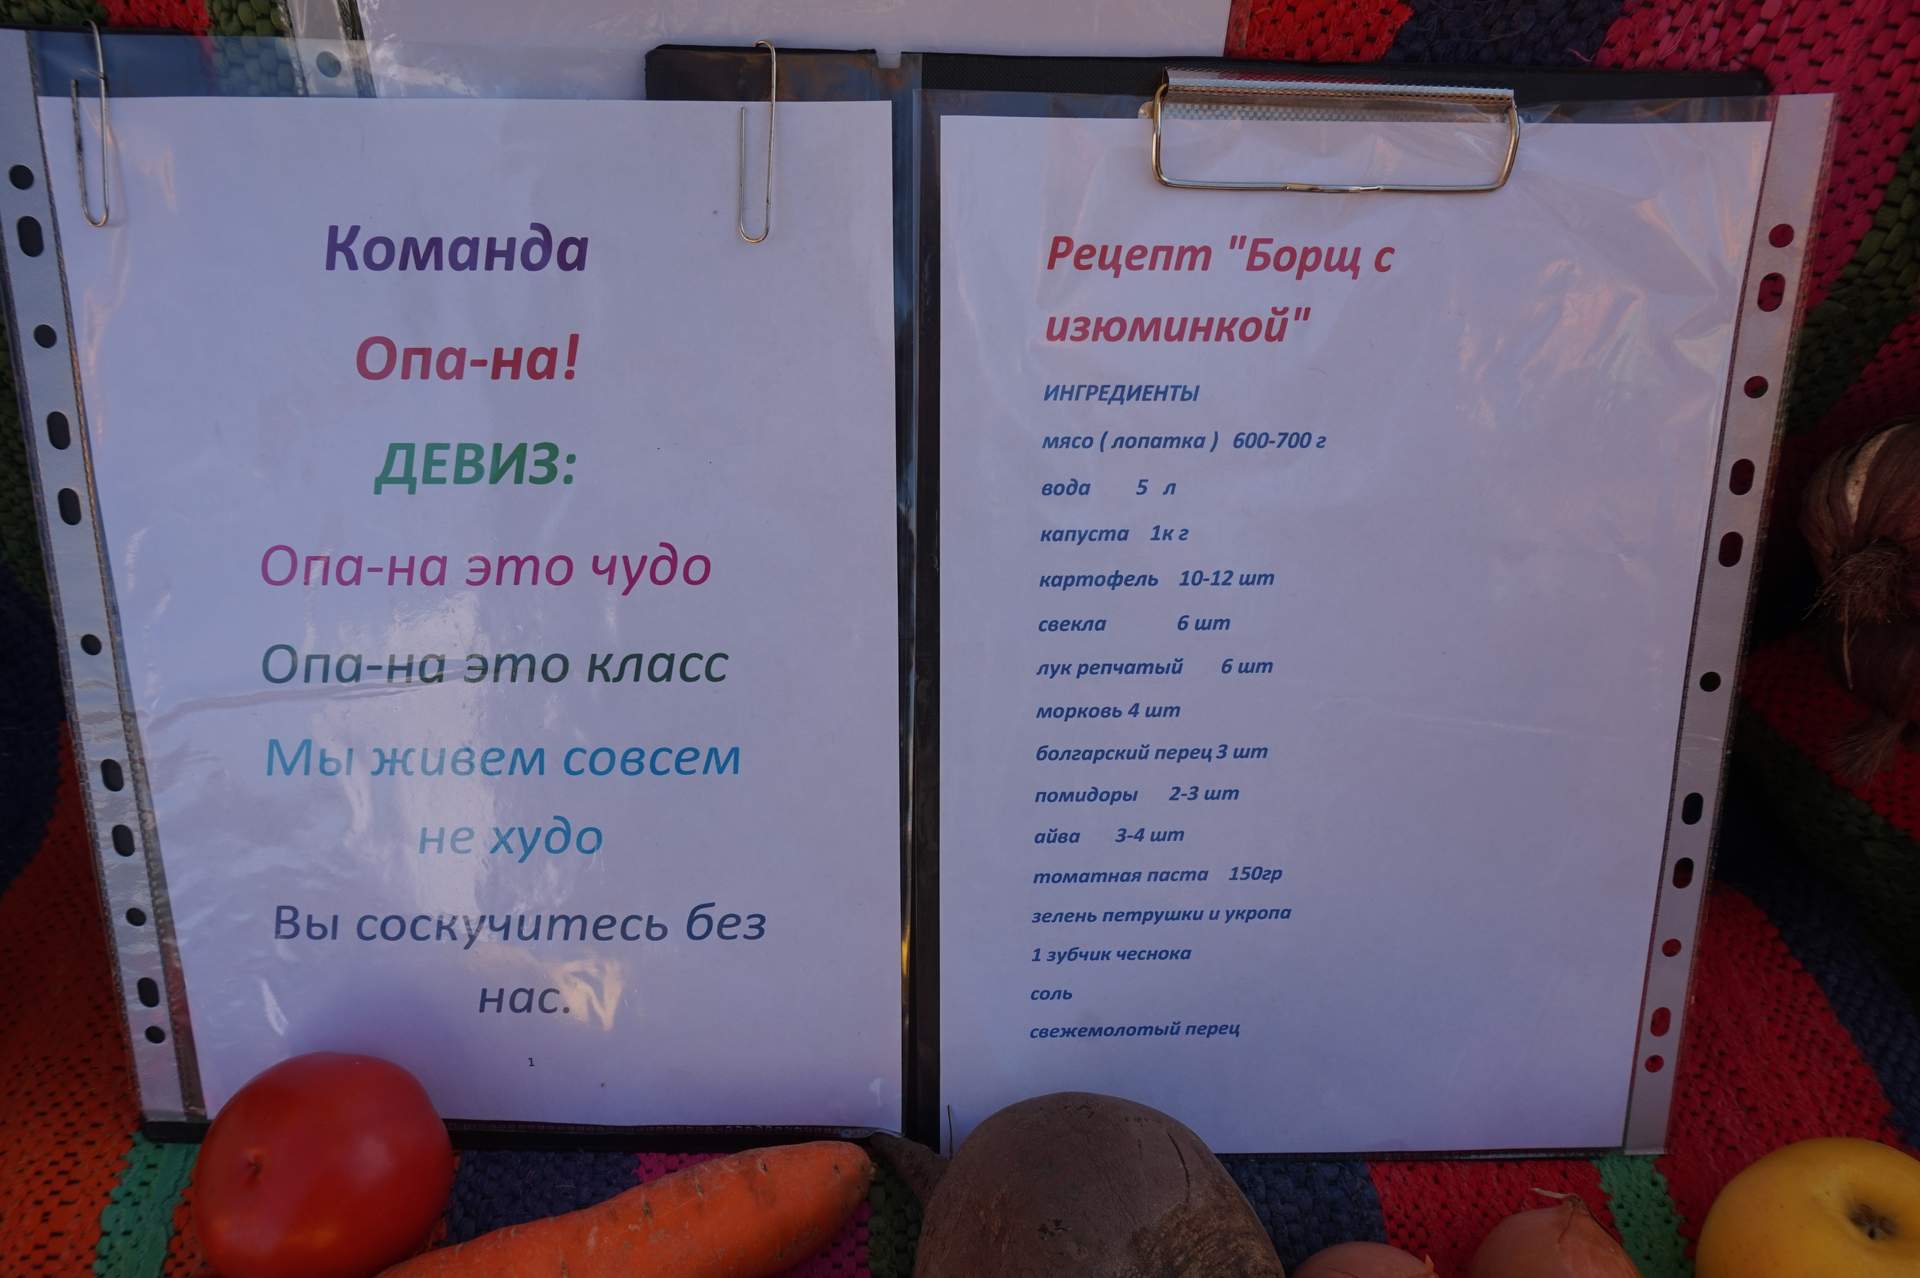 Команда
Опа-на!
ДЕВИЗ:
Опа-на это чудо
Опа-на это класс
Мы живем совсем
не худо
Вы соскучитесь без
нас.
1
Рецепт "Борщ с
изюминкой"
ИНГРЕДИЕНТЫ
мясо ( лопатка ) 600-700 г
вода 5 л
капуста 1к г
картофель 10-12 шт
свекла 6 шт
лук репчатый 6 шт
морковь 4 шт
болгарский перец 3 шт
помидоры 2-3 шт
айва 3-4 шт
томатная паста 150гр
зелень петрушки и укропа
1 зубчик чеснока
соль
свежемолотый перец